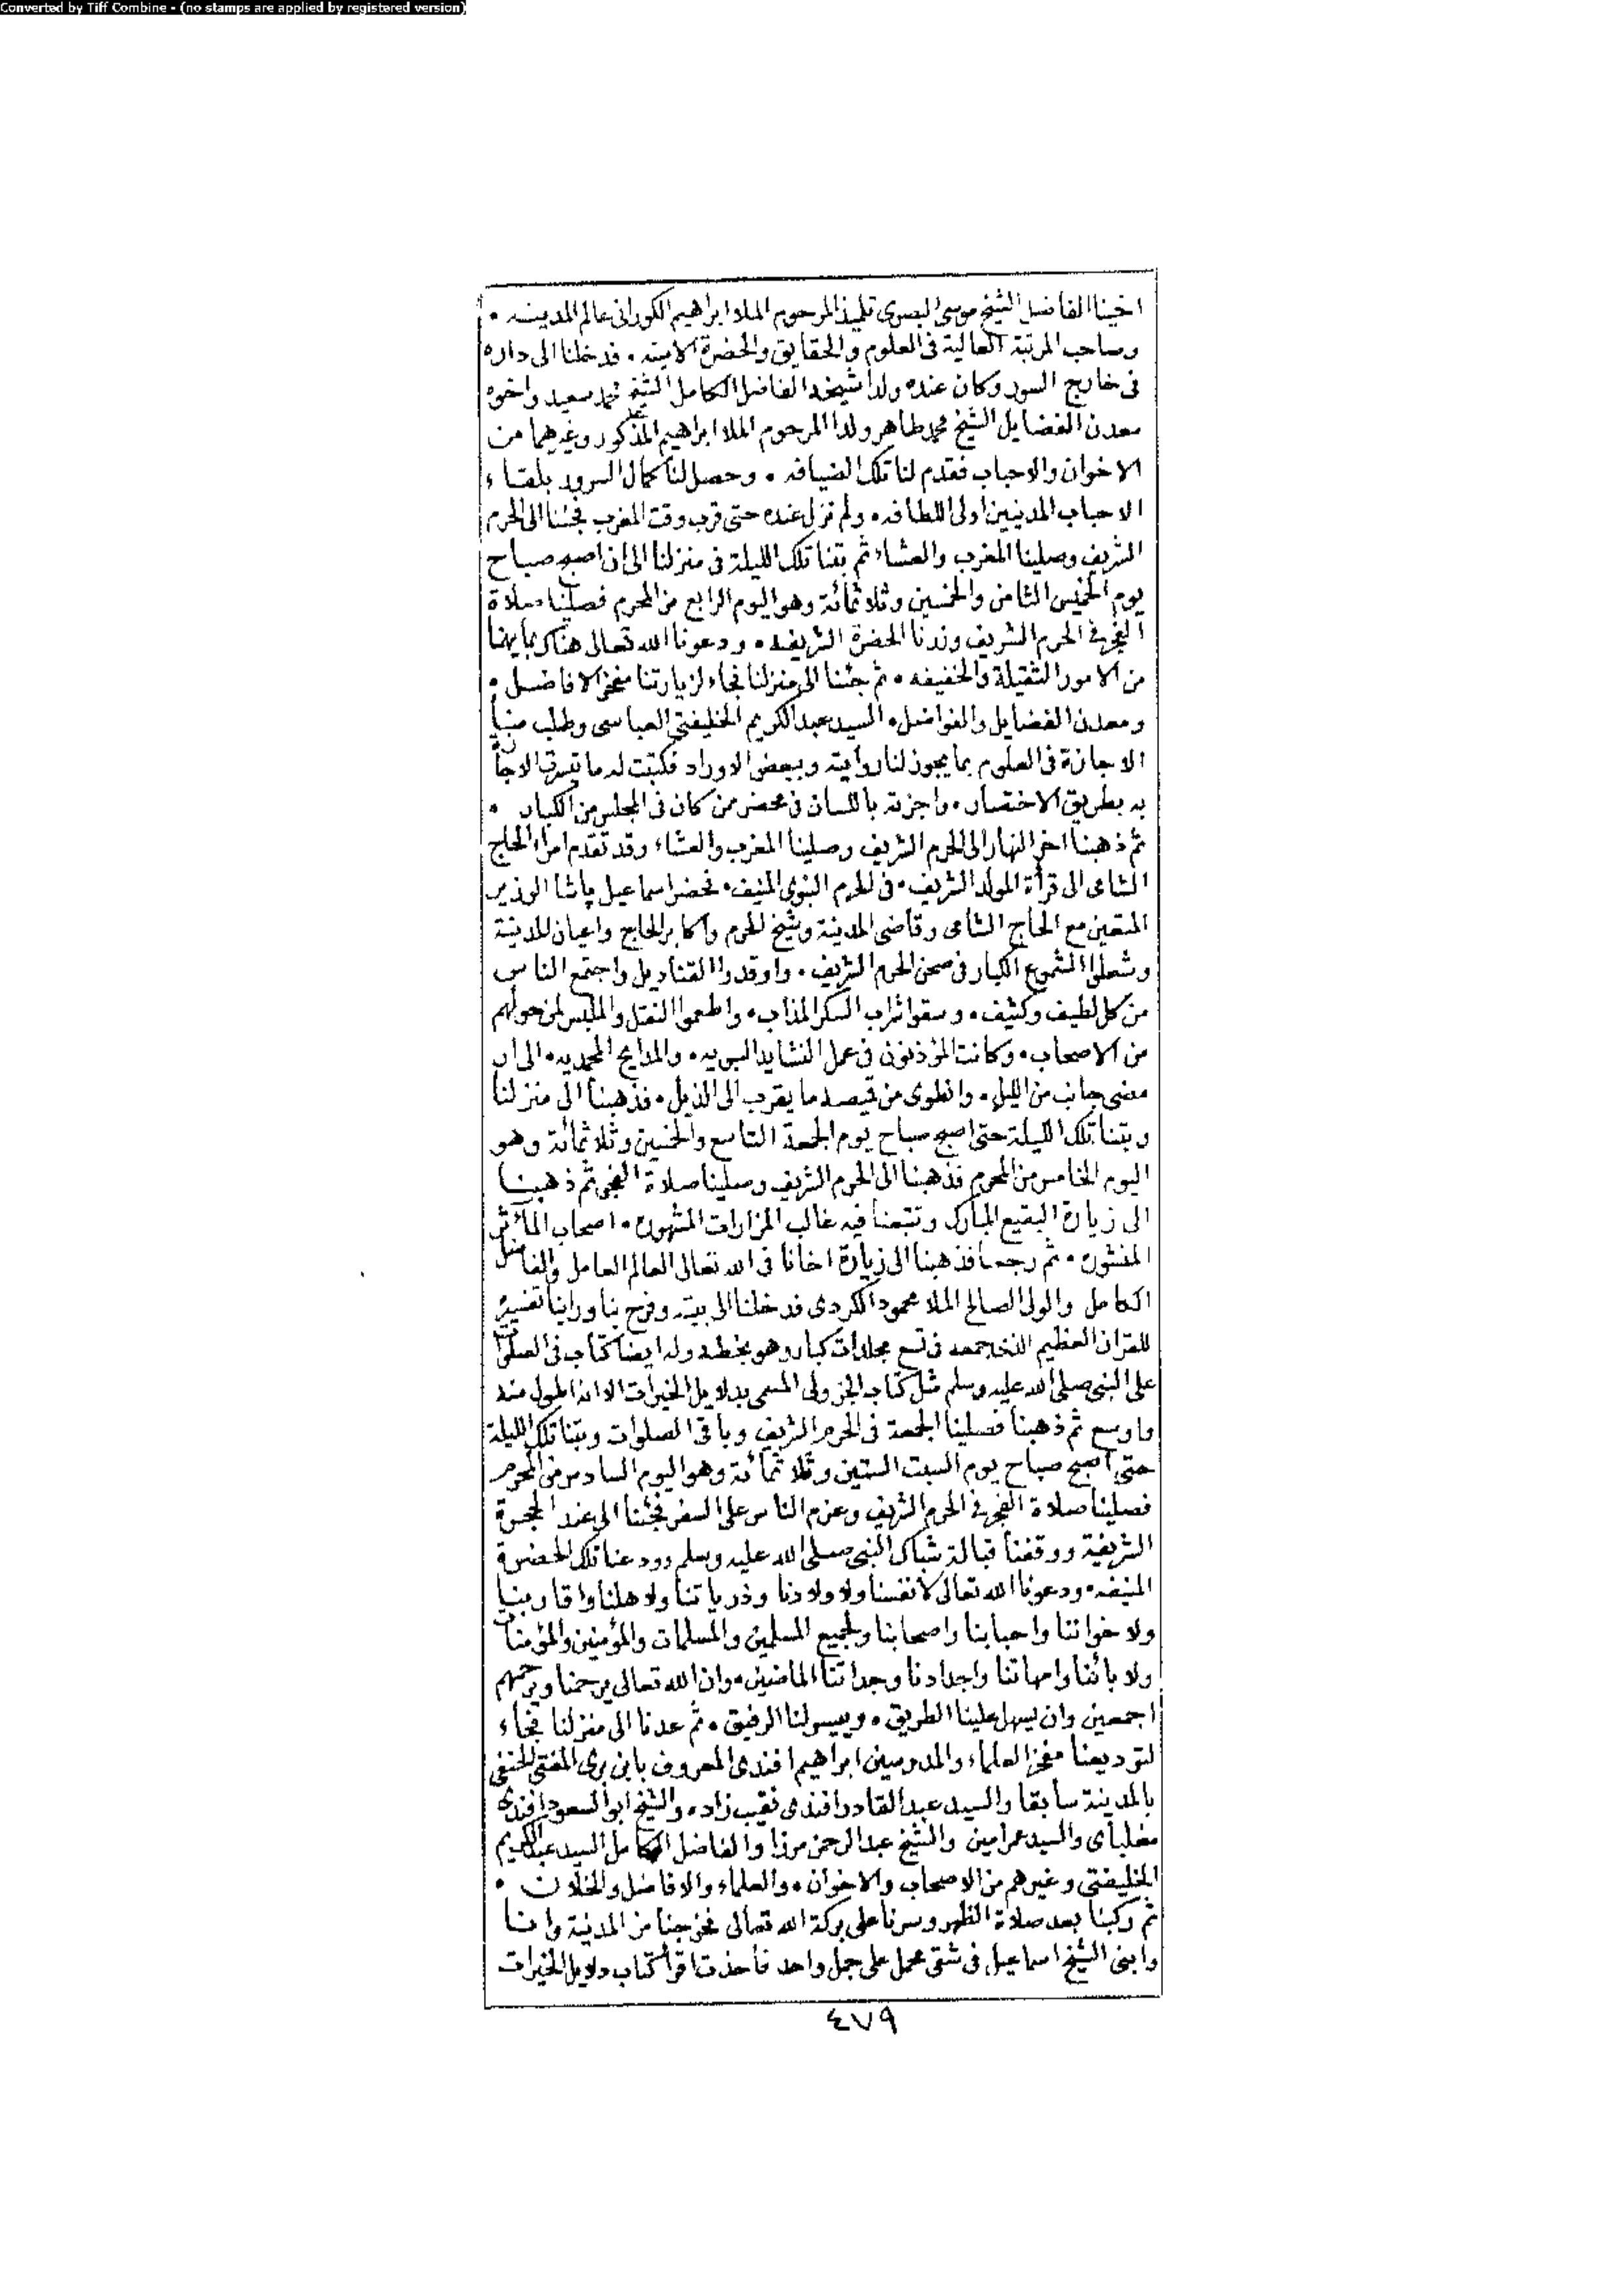 Converted by Tiff Combine - (no stamps are applied by registered version)
اخينا الفاضل الشيخ موسى البصرى تلميذ المرحوم الملا ابراهيم الكورانى عالم المدينه ٠
وصاحب المرتبة العالية فى العلوم والحقايق والحضرة الامينه ٠ فدخلنا الى داره
فى خارج السور وكان عنده ولدا شيخه الفاضل الكامل الشيخ محمد سعيد واخوه
معدن الفضايل الشيخ محمد طاهر ولدا المرحوم الملا ابراهيم المذكور وغيرهما من
الاخوان والاحباب فقدم لنا تلك الضيافه ٠ وحصل لنا كمال السرور بلقاء
الاحباب المدنيين اولى اللطافه ٠ ولم نزل عنده حتى قرب وقت المغرب فجئنا الى الحرم
الشريف وصلينا المغرب والعشاء ثم بتنا تلك الليلة فى منزلنا الى ان اصبح صباح
يوم الخميس الثامن والخمسين وثلاثمائة وهو اليوم الرابع من المحرم فصلينا صلاة
الفجر فى الحرم الشريف وزرنا الحضرة الشريفه ٠ ودعونا الله تعالى هناك بما يهمنا
من الامور الثقيلة والخفيفه ٠ ثم جئنا الى منزلنا فجاء لزيارتنا مفخر الافاضل ٠
ومعدن الفضايل والفواضل ٠ السيد عبد الكريم الخليفتى العباسى وطلب منا
الاجازة فى العلوم بما يجوز لنا روايته وببعض الاوراد فكتبت له ما تيسرت الاجازة
به بطريق الاختصار ٠ واجزته باللسان فى محضر من كان فى المجلس من الكبار ٠
ثم ذهبنا اخر النهار الى الحرم الشريف وصلينا المغرب والعشاء وقد تقدم امراء الحاج
الشامى الى قرأة المولد الشريف ٠ فى الحرم النبوى المنيف ٠ فحضر اسماعيل پاشا الوزير
المتعين مع الحاج الشامى وقاضى المدينة وشيخ الحرم واكابر الحاج واعيان المدينة
وشعلوا الشموع الكبار فى صحن الحرم الشريف ٠ واوقدوا القناديل واجتمع الناس
من كل لطيف وكثيف ٠ وسقوا شراب السكر المذاب ٠ واطعموا النقل والملبس لمن حولهم
من الاصحاب ٠ وكانت المؤذنون فى عمل النشايد النبويه ٠ والمدايح المحمديه ٠ الى ان
مضى جانب من الليل ٠ وانطوى من قميصه ما يقرب الى الذيل ٠ فذهبنا الى منزلنا
وبتنا تلك الليلة حتى اصبح صباح يوم الجمعة التاسع والخمسين وثلاثمائة وهو
اليوم الخامس من المحرم فذهبنا الى الحرم الشريف وصلينا صلاة الفجر ثم ذهبنا
الى زيارة البقيع المبارك وتتبعنا فيه غالب المزارات المشهوره ٠ اصحاب المآثر
المنشوره ٠ ثم رجعنا فذهبنا الى زيارة اخانا فى الله تعالى العالم العامل والفاضل
الكامل والولى الصالح الملا محمود الكردى فدخلنا الى بيته وفرح بنا وراينا تفسيره
للقران العظيم الذى جمعه فى تسع مجلدات كبار وهو بخطه وله ايضا كتاب فى الصلاة
على النبى صلى الله عليه وسلم مثل كتاب الجزولى المسمى بدلايل الخيرات الا انه اطول منه
واوسع ثم ذهبنا فصلينا الجمعة فى الحرم الشريف وباقى الصلوات وبتنا تلك الليلة
حتى اصبح صباح يوم السبت الستين وثلاثمائة وهو اليوم السادس من المحرم
فصلينا صلاة الفجر فى الحرم الشريف وعزم الناس على السفر فجئنا الى عند الحجرة
الشريفة ووقفنا قبالة شباك النبى صلى الله عليه وسلم وودعنا تلك الحضرة
المنيفه ٠ ودعونا الله تعالى لانفسنا ولاولادنا وذرياتنا ولاهلنا واقاربنا
ولاخواننا واحبابنا واصحابنا ولجميع المسلمين والمسلمات والمؤمنين والمؤمنات
ولابائنا وامهاتنا واجدادنا وجداتنا الماضين ٠ وان الله تعالى يرحمنا ويرحمهم
اجمعين وان يسهل علينا الطريق ٠ وييسر لنا الرفيق ٠ ثم عدنا الى منزلنا فجاء
لتوديعنا مفخر العلماء والمدرسين ابراهيم افندى المعروف بابن برى المفتى الحنفى
بالمدينة سابقا والسيد عبد القادر افندى نقيب زاده والشيخ ابو السعود افندى
مغلباى والسيد عمر امين والشيخ عبد الرحمن مرزا والفاضل الكامل السيد عبد الكريم
الخليفتى وغيرهم من الاصحاب والاخوان ٠ والعلماء والافاضل والخلان ٠
ثم ركبنا بعد صلاة الظهر وسرنا على بركة الله تعالى فخرجنا من المدينة وانا
وابنى الشيخ اسماعيل فى شقى محمل على جمل واحد فأخذت اقرأ كتاب دلايل الخيرات
٤٧٩